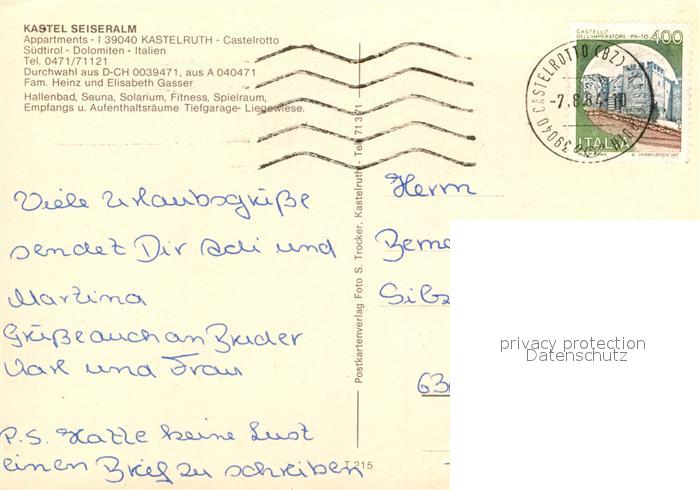 KASTEL SEISERALM
Appartments - I 39040 KASTELRUTH - Castelrotto
Südtirol - Dolomiten - Italien
Tel. 0471/71121
Durchwahl aus D-CH 0039471, aus A 040471
Fam. Heinz und Elisabeth Gasser
Hallenbad, Sauna, Solarium, Fitness, Spielraum,
Empfangs u. Aufenthaltsräume Tiefgarage- Liegewiese.
CASTELLO
DELL'IMPERATORE - PRATO 400
ITALIA
39040 CASTELROTTO (BZ)
-7.8.84
Viele Urlaubsgrüße
sendet Dir Adi und
Martina
Grüße auch an Bruder
Karl und Frau
P.S. Hatte keine Lust
einen Brief zu schreiben
Postkartenverlag Foto S. Trocker, Kastelruth - Tel. 71371
T 215
Herrn
privacy protection
Datenschutz